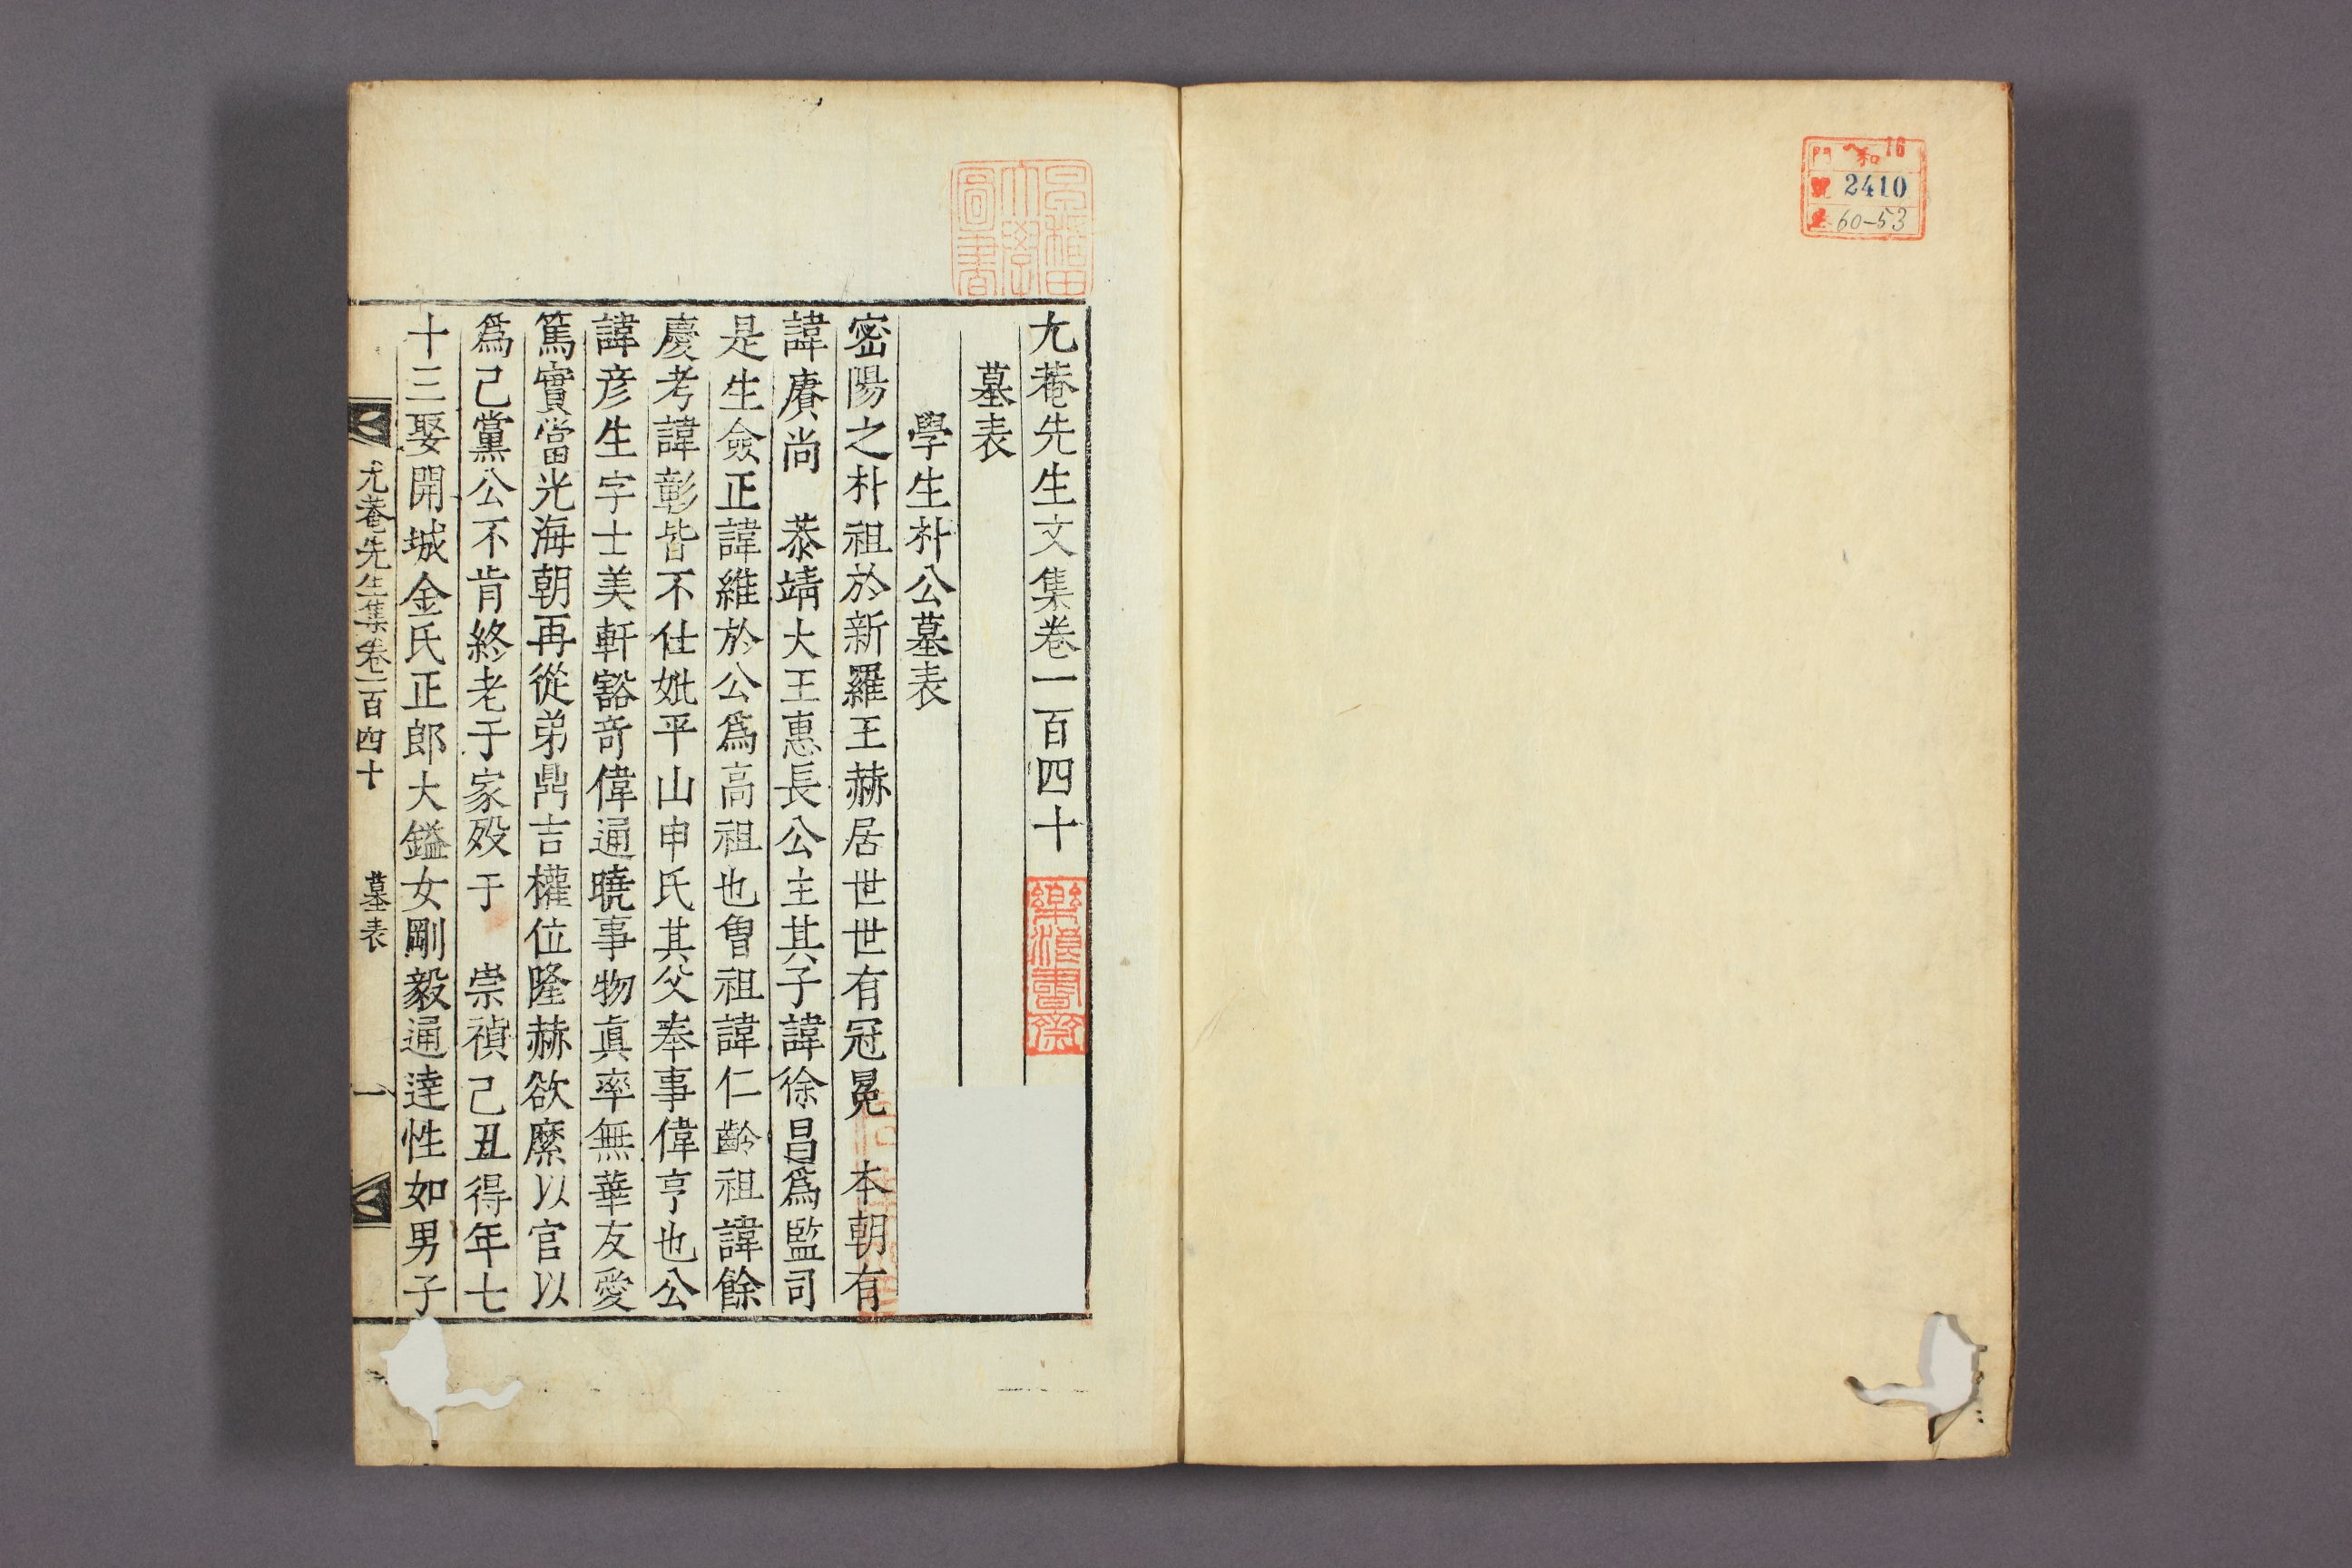 門 和 16
號 2410
60-53
早稲田大學圖書
尤菴先生文集卷一百四十
樂浪書齋
墓表
學生朴公墓表
密陽之朴祖於新羅王赫居世世有冠冕 本朝有
諱賡尚 恭靖大王惠長公主其子諱徐昌爲監司
是生僉正諱維於公爲高祖也曾祖諱仁齡祖諱餘
慶考諱彰皆不仕妣平山申氏其父奉事偉亨也公
諱彦生字士美軒豁奇偉通曉事物眞率無華友愛
篤實當光海朝再從弟鼎吉權位隆赫欲縻以官以
爲己黨公不肯終老于家歿于 崇禎己丑得年七
十三娶開城金氏正郎大鎰女剛毅通達性如男子
尤菴先生集卷一百四十 墓表 一